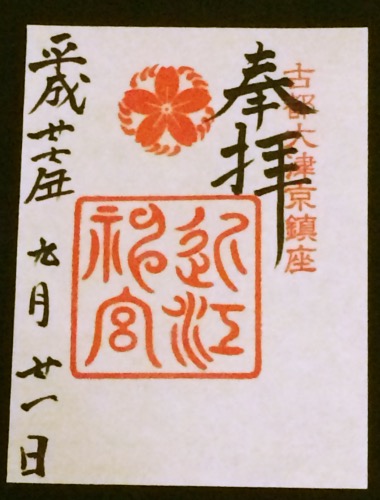 古都大津京鎮座
奉拝
近江
神宮
平成廿七年九月廿一日